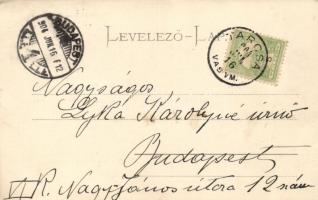 LEVELEZŐ-LAP
BUDAPEST
904 JUN.16
TARCSA
VASVM.
Nagyságos
Lyka Károlyné úrnő
Budapest
VI. R. Nagy János utca 12 szám